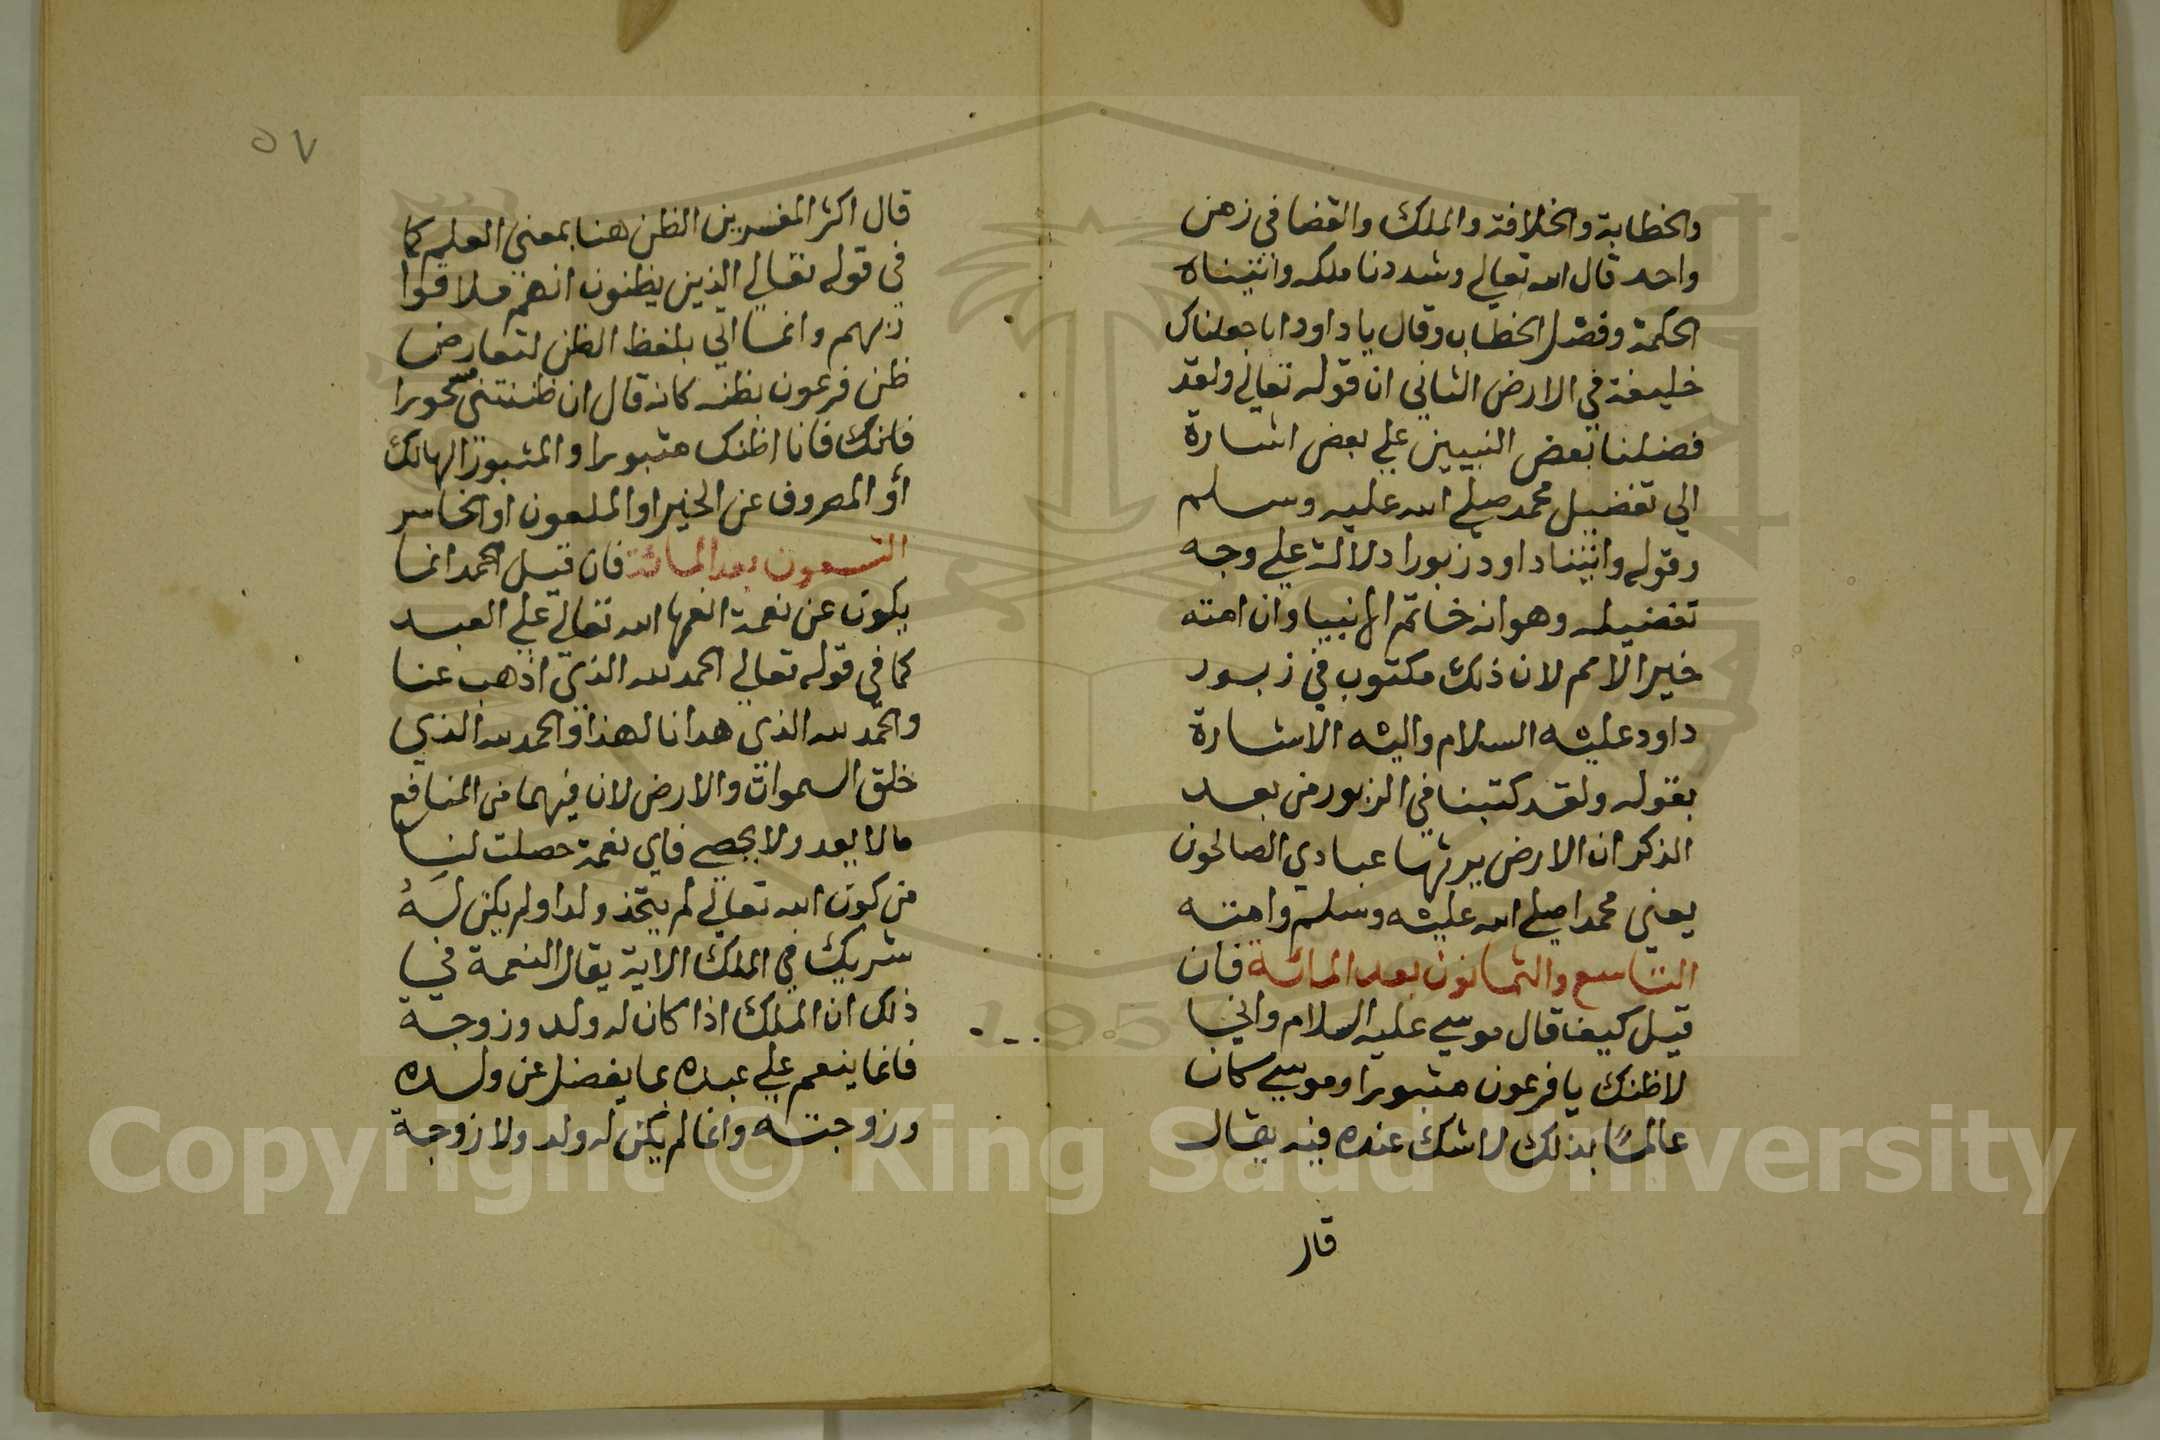 والخطابة والخلافة والملك والقضا في زمن
واحد قال الله تعالي وشددنا ملكه واتيناه
الحكمة وفصل الخطاب وقال يا داود انا جعلناك
خليفة في الارض الثاني ان قوله تعالي ولقد
فضلنا بعض النبيين علي بعض اشارة
الي تفضيل محمد صلي الله عليه وسلم
وقوله واتينا داود زبورا دلالة علي وجه
تفضيله وهو انه خاتم الانبيا وان امته
خير الامم لان ذلك مكتوب في زبور
داود عليه السلام واليه الاشارة
بقوله ولقد كتبنا في الزبور من بعد
الذكر ان الارض يرثها عبادي الصالحون
يعني محمدا صلي الله عليه وسلم وامته
التاسع والثمانون بعد المائة فان
قيل كيف قال موسي عليه السلام واني
لاظنك يا فرعون مثبورا وموسي كان
عالما بذلك لا شك عنده فيه يقال
قال
٥٧
قال اكثر المفسرين الظن هنا بمعني العلم كما
في قوله تعالي الذين يظنون انهم ملاقوا
ربهم وانما اتي بلفظ الظن لتعارض
ظن فرعون بظنه كانه قال ان ظننتني مسحورا
فانك فانا اظنك مثبورا والمثبور الهالك
أو المصروف عن الخير او الملعون او الخاسر
التسعون بعد المائة فان قيل الحمد انما
يكون عن نعمة انعمها الله تعالي علي العبد
كما في قوله تعالي الحمد لله الذي اذهب عنا
والحمد لله الذي هدانا لهذا والحمد لله الذي
خلق السموات والارض لان فيهما من المنافع
مالا يعد ولا يحصي فاي نعمة حصلت لنا
من كون الله تعالي لم يتخذ ولدا ولم يكن له
شريك في الملك الاية يقال النعمة في
ذلك ان الملك اذا كان له ولد وزوجة
فانما ينعم علي عبده بما يفضل عن ولده
وزوجته وانما لم يكن له ولد ولا زوجة
Copyright © King Saud University
195